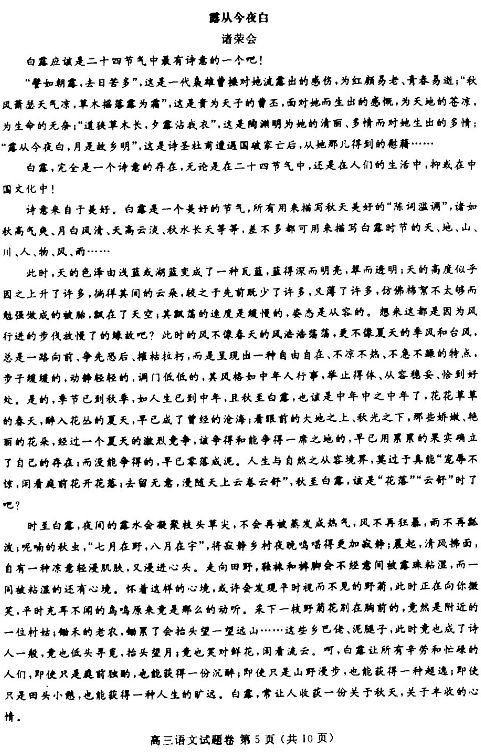 露从今夜白
诸荣会
白露应该是二十四节气中最有诗意的一个吧！
“譬如朝露，去日苦多”，这是一代枭雄曹操对她流露出的感伤，为红颜易老、青春易逝；“秋
风萧瑟天气凉，草木摇落露为霜”，这是贵为天子的曹丕，面对她而生出的感慨，为天地的苍凉，
为生命的无奈；“道狭草木长，夕露沾我衣”，这是陶渊明为她的清丽、多情而对她生出的多情；
“露从今夜白，月是故乡明”，这是诗圣杜甫遭遇国破家亡后，从她那儿得到的慰藉……
白露，完全是一个诗意的存在，无论是在二十四节气中，还是在人们的生活中，抑或在中
国文化中！
诗意来自于美好。白露是一个美好的节气，所有用来描写秋天美好的“陈词滥调”，诸如
秋高气爽、月白风清、天高云淡、秋水长天等等，差不多都可用来描写白露时节的天、地、山、
川、人、物、风、雨……
此时，天的色泽由浅蓝或湖蓝变成了一种瓦蓝，蓝得深而明亮，翠而透明；天的高度似乎
因之上升了许多，徜徉其间的云朵，较之于先前既少了许多，又薄了许多，仿佛棉絮不太够而
勉强做成的被胎，飘在了天空；其飘荡的速度是缓慢的，姿态是从容的。想来这都是因为风
行进的步伐放慢了的缘故吧？此时的风不像春天的风浩浩荡荡，更不像夏天的季风和台风，
总是一路向前、争先恐后、摧枯拉朽，而是呈现出一种自由自在、不凉不热、不急不躁的特点，
步子缓缓的，动静轻轻的，调门低低的，其风格如中年人行事，举止得体、从容稳妥、恰到好
处。是的，季节已到秋季，如人生已到中年，且秋至白露，也该是中年中之中年了，花花草草
的春天，醉入花丛的夏天，早已成了曾经的沧海；看眼前的大地之上、秋光之下，那些娇嫩、艳
丽的花朵，经过一个夏天的激烈竞争，该争得和能争得一席之地的，早已用累累的果实确立
了自己的存在；而没能争得的，早已零落成泥。人生与自然之从容境界，莫过于真能“宠辱不
惊，闲看庭前花开花落；去留无意，漫随天上云卷云舒”，秋至白露，该是“花落”“云舒”时了
吧？
时至白露，夜间的露水会凝聚枝头草尖，不会再被蒸发成热气，风不再狂暴，雨不再瓢
泼；呢喃的秋虫，“七月在野，八月在宇”，将寂静乡村夜晚鸣唱得更加寂静；晨起，清风拂面，
自有一种凉意轻漫肌肤，又漫进心头。走向田野，鞋袜和裤脚会不经意间被露珠粘湿，而一
同被粘湿的还有心境。怀着这样的心境，或许会发现平时视而不见的野菊，此时正在向你微
笑，平时充耳不闻的鸟鸣原来竟是那么的动听。采下一枝野菊花别在胸前的，竟然是附近的
一位村姑；锄禾的老农，锄累了会抬头望一望远山……这些乡巴佬、泥腿子，此时竟也成了诗
人一般，竟也低头寻觅，抬头望月；竟也笑对鲜花，闲看流云。呵，白露让所有辛劳和忙碌的
人们，即使只是庭前独酌，也能获得一份沉醉；即使只是山野漫步，也能获得一种超逸；即使
只是田头小憩，也能获得一种人生的旷远。白露，常让人收获一份关于秋天，关于丰收的心
情。
高三语文试题卷 第5页（共10页）